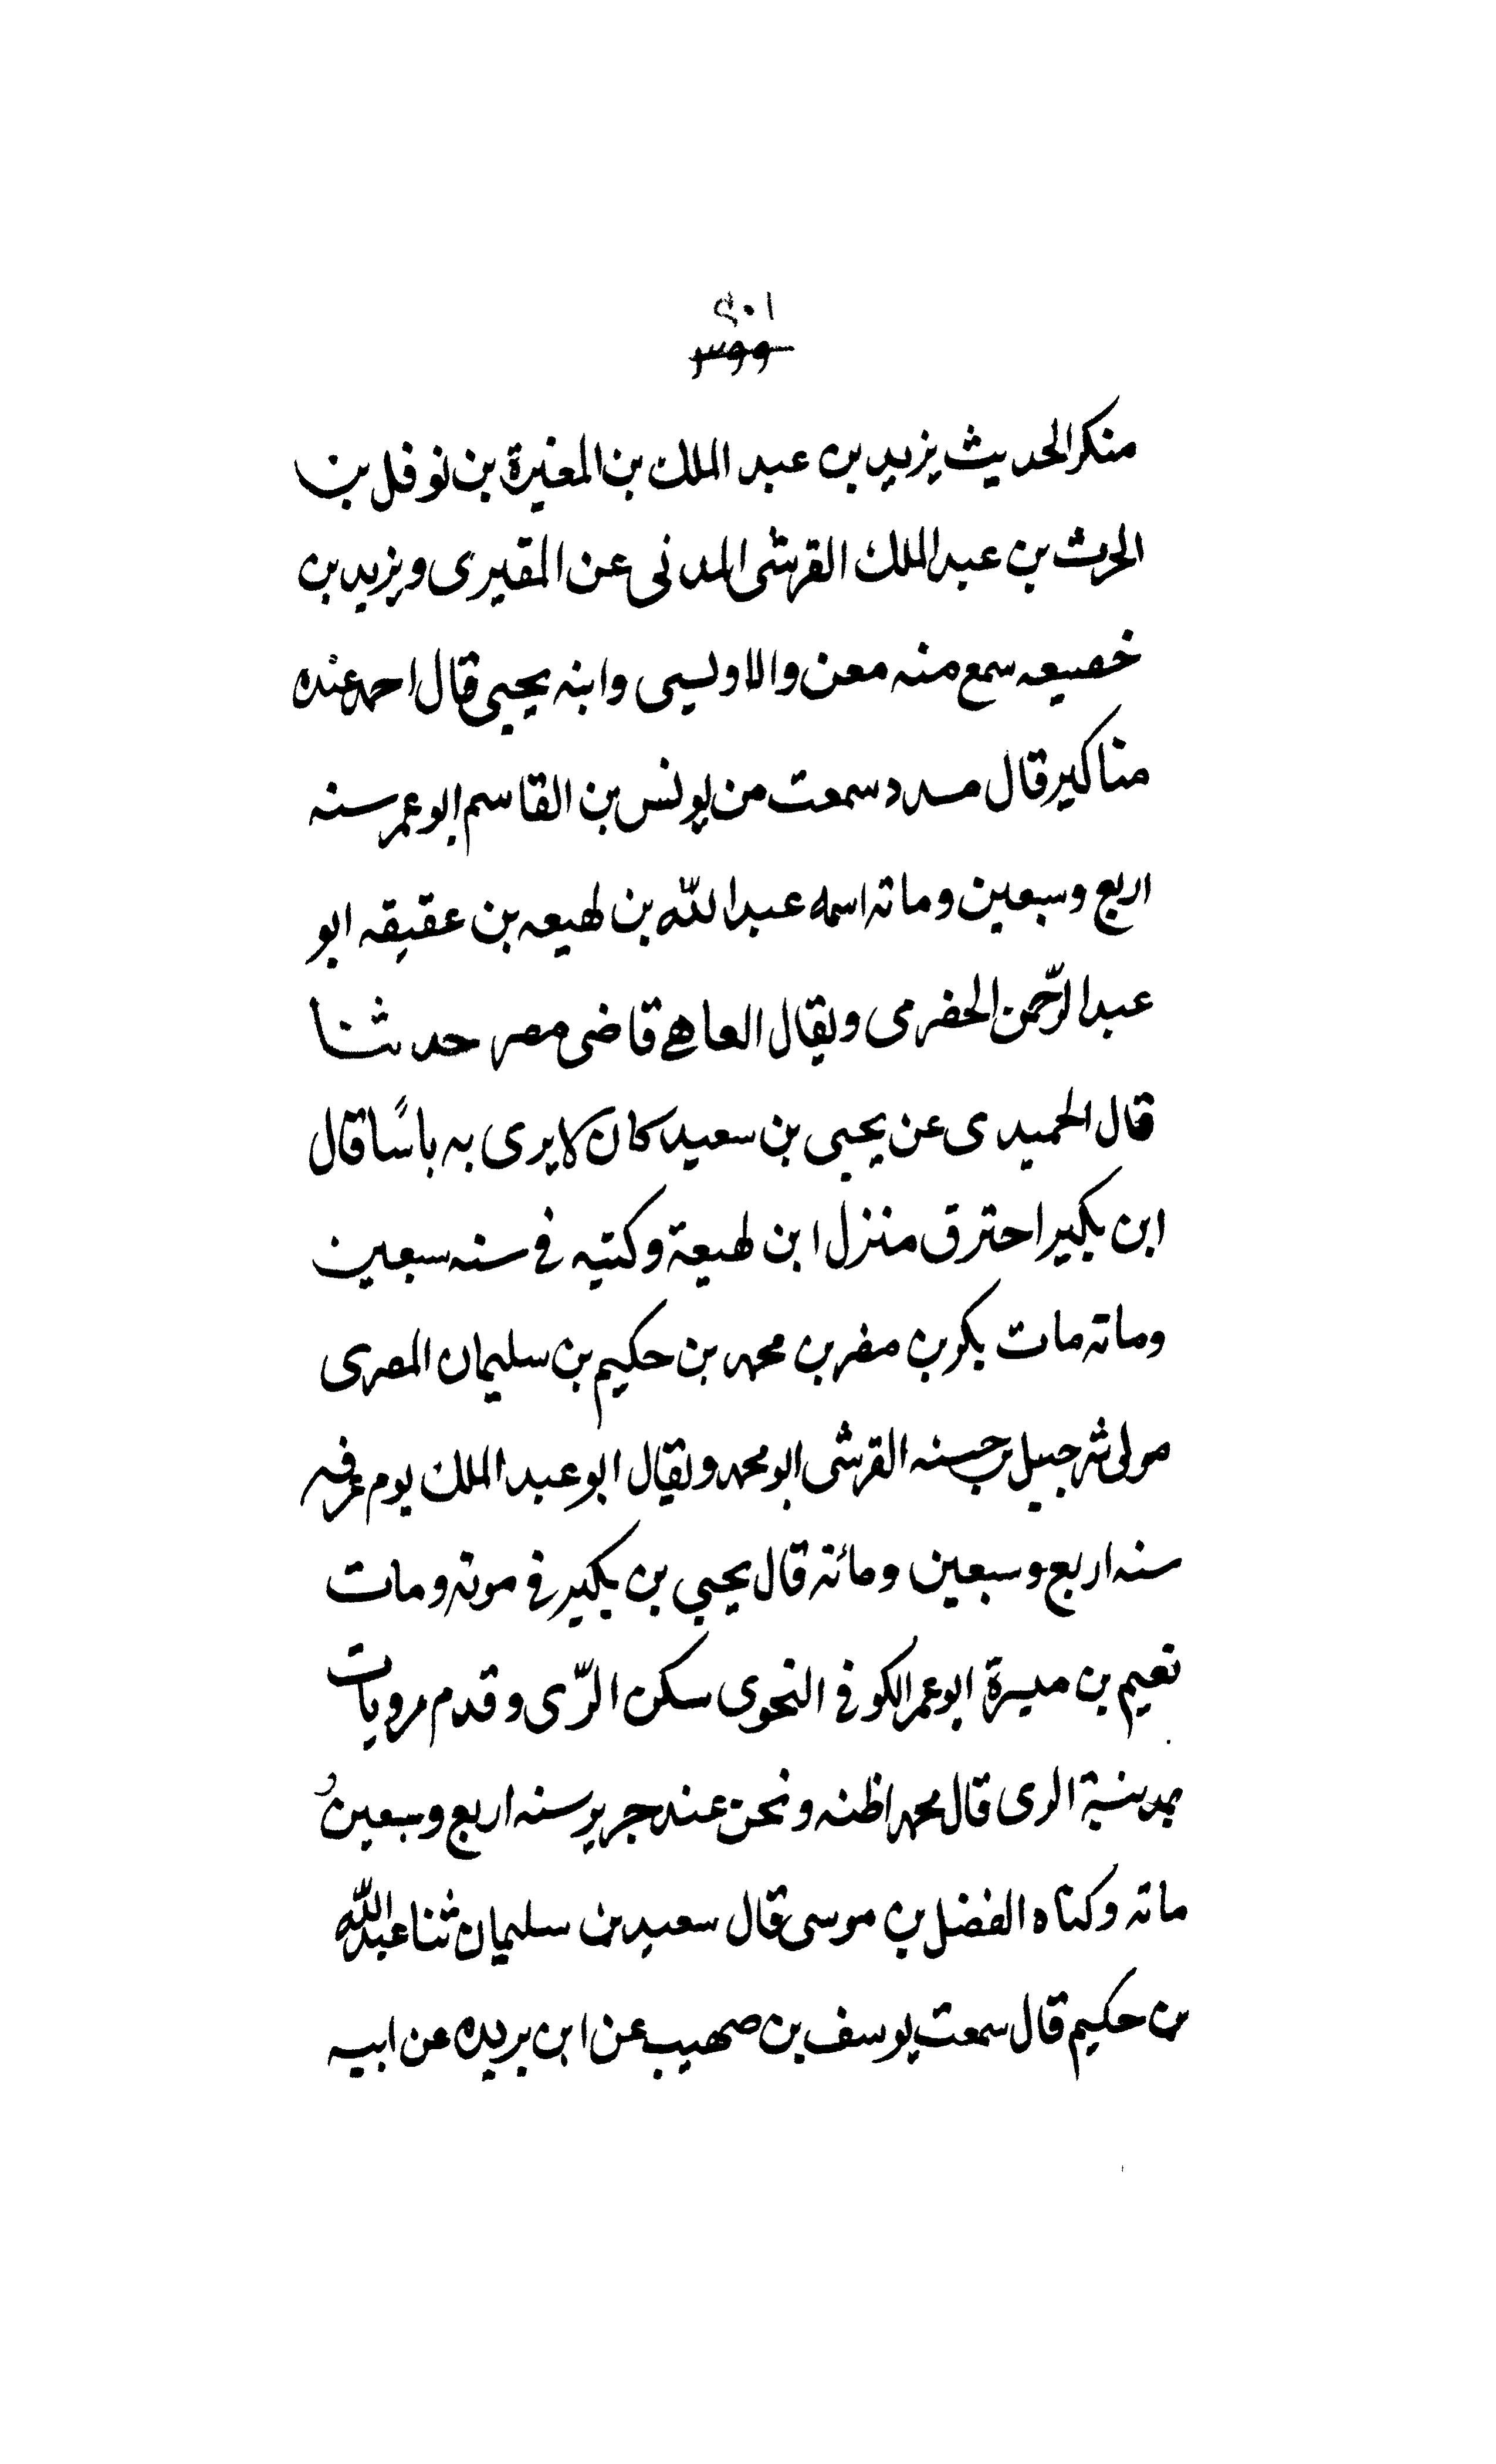 منكر الحديث يزيد بن عبد الملك بن المغيرة بن نوفل بن
الحرث بن عبد الملك القرشى المدنى عن المقبرى ويزيد بن
خصيعه سمع منه معن والاويسى وابنه يحيى قال احمد عنده
مناكير قال مسدد سمعت من يونس بن القاسم ابو عمر سنه
اربع وسبعين وماته اسمه عبد الله بن لهيعه بن عقيقه ابو
عبد الرّحمن الحضرمى ويقال قاضى مصر حدثنا
قال الحميدى عن يحيى بن سعيد كان لا يرى به باسًا قال
ابن بكير احترق منزل ابن لهيعة وكتبه فى سنه سبعين
وماته مات بكر بن مضر بن محمد بن حكيم بن سليمان المصرى
مولى شرحبيل بن حسنه القرشى ابو محمد ويقال ابو عبد الملك يوم عرفه
سنه اربع وسبعين ومائة قال يحيى بن بكير فى موته ومات
نعيم بن ميسرة ابو عمر الكوفى النحوى سكن الرّى وقدم مرو بات
بمدينة الرى قال محمد اظنه ونحن عند جرير سنه اربع وسبعين و
ماته وكناه الفضل بن موسى قال سعيد بن سليمان ثنا عبد الله
بن حكيم قال سمعت يوسف بن صهيب عن ابن بريده عن ابيه